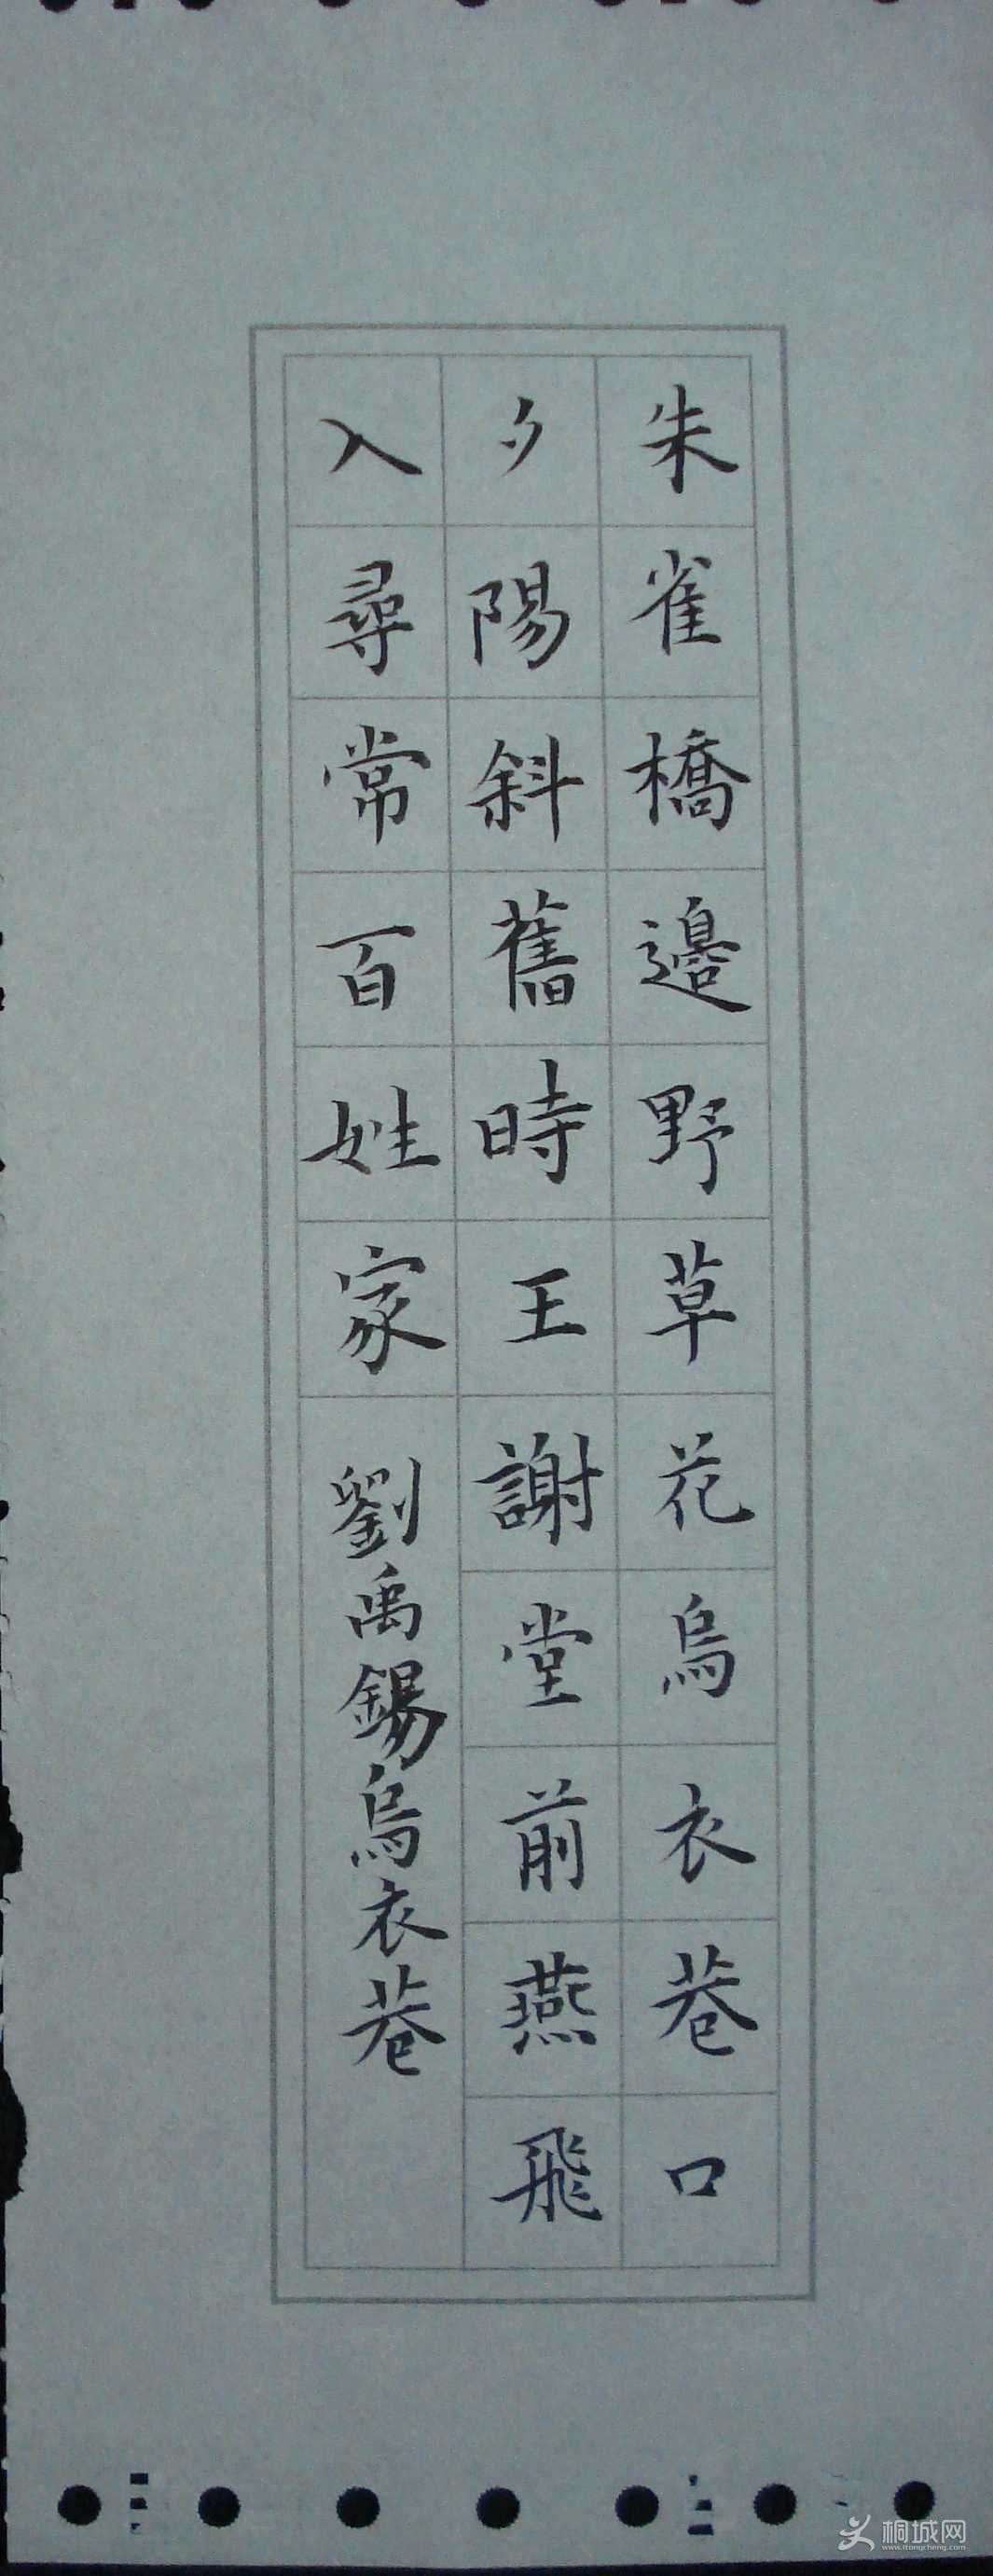 朱雀橋邊野草花烏衣巷口
夕陽斜舊時王謝堂前燕飛
入尋常百姓家
劉禹錫烏衣巷
桐城网
www.itongcheng.com